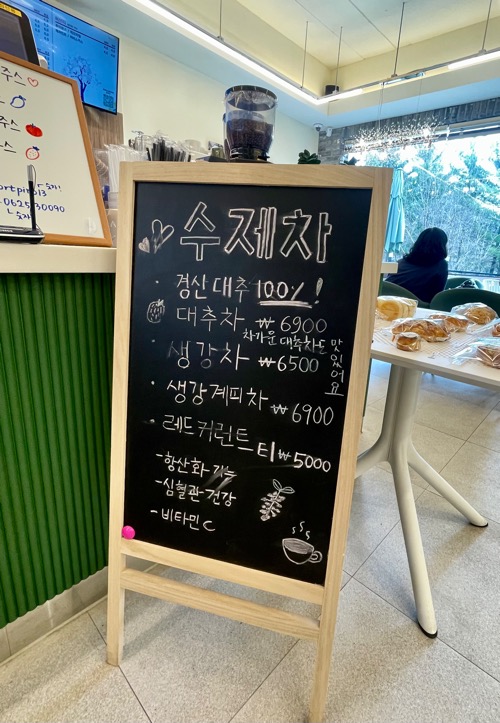 수제차
경산대추 100% !
대추차 ₩6900
차가운 대추차도 맛있어요
생강차 ₩6500
생강계피차 ₩6900
레드커런트 티 ₩5000
-항산화 기능
-심혈관 건강
-비타민C
주스
주스
스